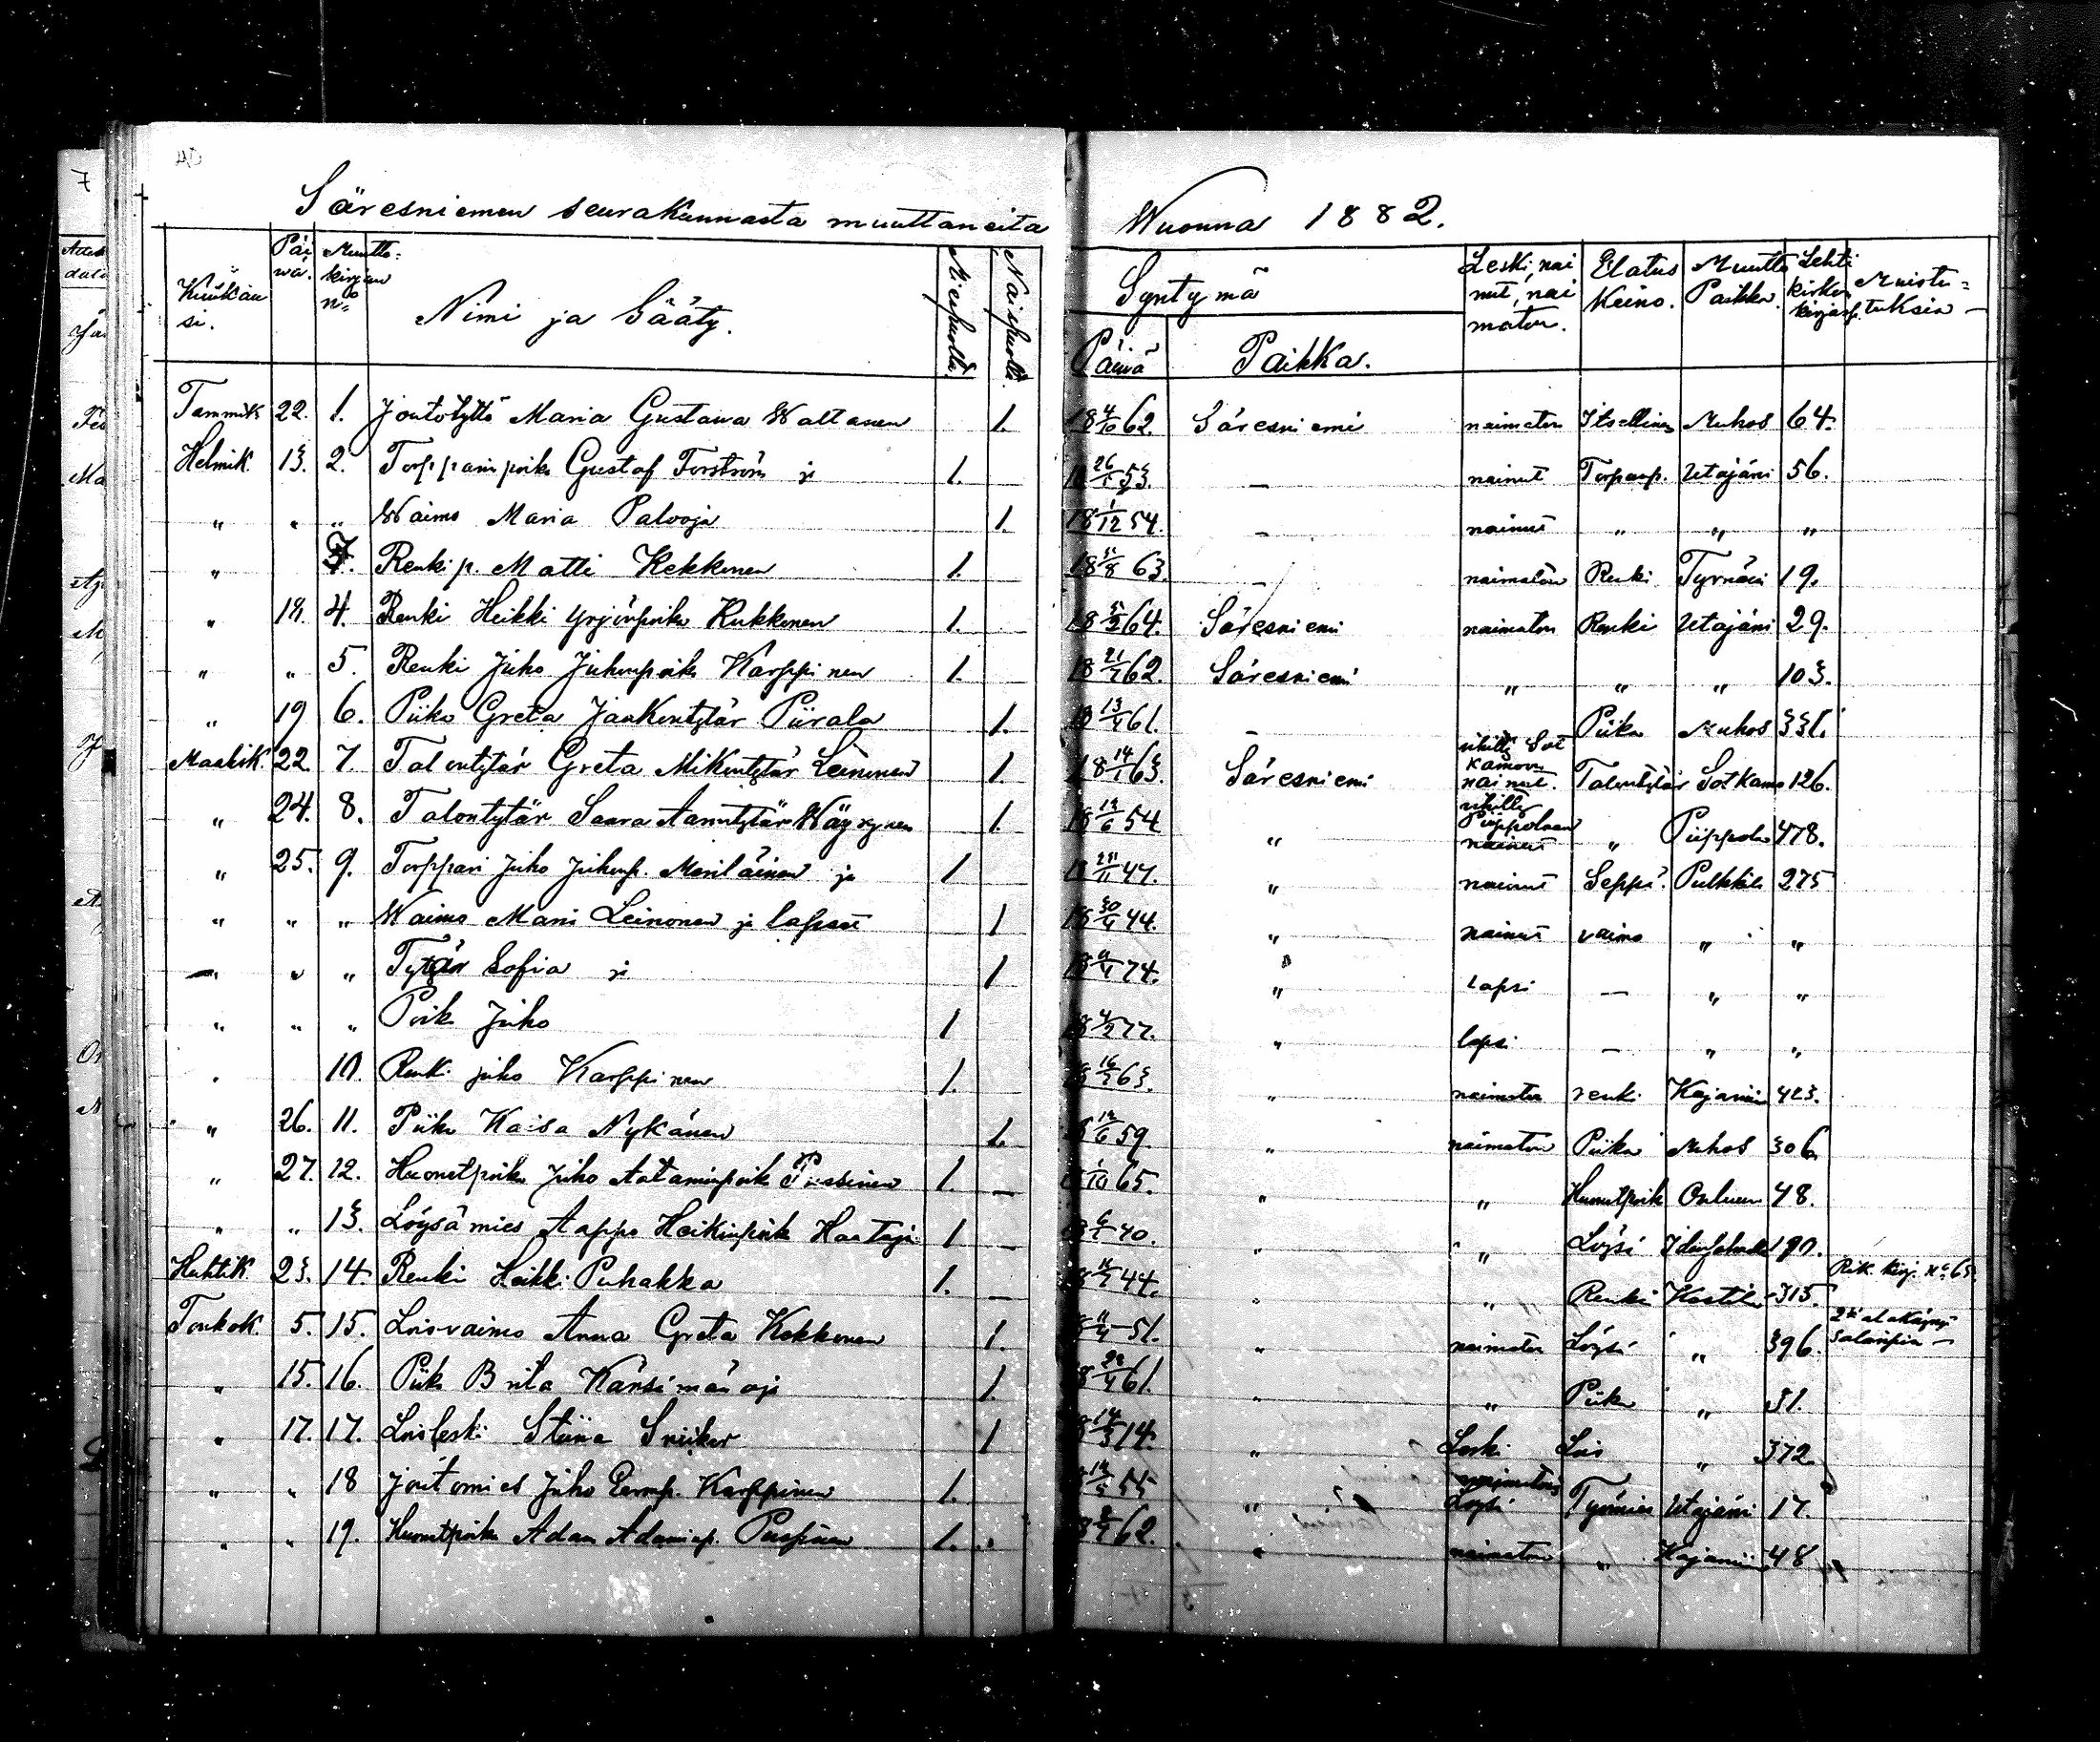 Säresniemen seurakunnasta muuttaneita Wuonna 1882.
Kuukausi. Päiwä. Muuttokirjan n:o Nimi ja Sääty. Miespuolta. Naispuolta. Syntymä Päiwä Paikka. Leski, nainut, naimaton. Elatus Keino. Muutto Paikka. Lehti kirkonkirjass. Muistutuksia
Tammik 22. 1. Joutotyttö Maria Gustawa Waltanen 1. 18 4/10 62. Säresniemi naimaton Itsellinen Muhos 64.
Helmik. 13. 2. Torpparinpoika Gustaf Forström ja 1. 18 26/1 53. — nainut Torparp. Utajärvi 56.
" " " Waimo Maria Palooja 1. 18 1/12 54. — nainut " " "
" 3. Renki p. Matti Kekkonen 1. 63. — naimaton Renki Tyrnävä 19.
" 18. 4. Renki Heikki Yrjönpoika Kukkonen 1. 64. Säresniemi naimaton Renki Utajärvi 29.
" " 5. Renki Juho Juhonpoika Karppinen 1. 18 21/7 62. Säresniemi " " " 103.
" 19 6. Piika Greta Jaakontytär Piirala 1. 18 13/4 61. — Piika Muhos 331.
Maalisk. 22. 7. Talontytär Greta Mikontytär Leinonen 1. 18 14/1 63. Säresniemi vihitty Sotkamoon nainut. Talontytär Sotkamo 126.
" 24. 8. Talontytär Saara Aaruntytär Wäyrynen 1. 54 " vihitty Piippolaan nainut " Piippola 478.
" 25. 9. Torppari Juho Juhonp. Meriläinen ja 1 47. " nainut Seppä. Pulkkila 275
" " " Waimo Mari Leinonen ja lapset 1 18 30/4 44. " nainut vaimo " "
" " " Tytär Sofia ja 1 74. " lapsi — " "
" " " Poik Juho 1 18 4/2 77. " lapsi — " "
" 10. Renki Juho Karppinen 1. 63. " naimaton renki Kajaani 423.
" 26. 11. Piika Kaisa Nykänen 1. 59. " naimaton Piika Muhos 306
" 27. 12. Huonetpoika Juho Aataminpoika Pussinen 1. — 1/10 65. " " Huonetpoik Ouluun 48.
" " 13. Löysämies Aappo Heikinpoik Haataja 1 — 40. " " Löysi 190.
Huhtik 23. 14. Renki Heikki Puhakka 1. — 44. " " Renki 315. Rik. kirj. n:o 65.
Toukok. 5. 15. Loisvaimo Anna Greta Kokkonen 1. 51. " naimaton Löysi " 396.
" 15. 16. Piika Brita Kärsimäoja 1. 61. " " Piika " 51.
" 17. 17. Loisleski Stiina Sniiker 1 14. " Leski Lois " 372.
" " 18 Joutomies Juho Karppinen 1. 55 " naimaton Löysi Työmies Utajärvi 17.
" " 19. Huonetpoika Adam Adaminp. 1. 62. " naimaton " Kajaanii 48